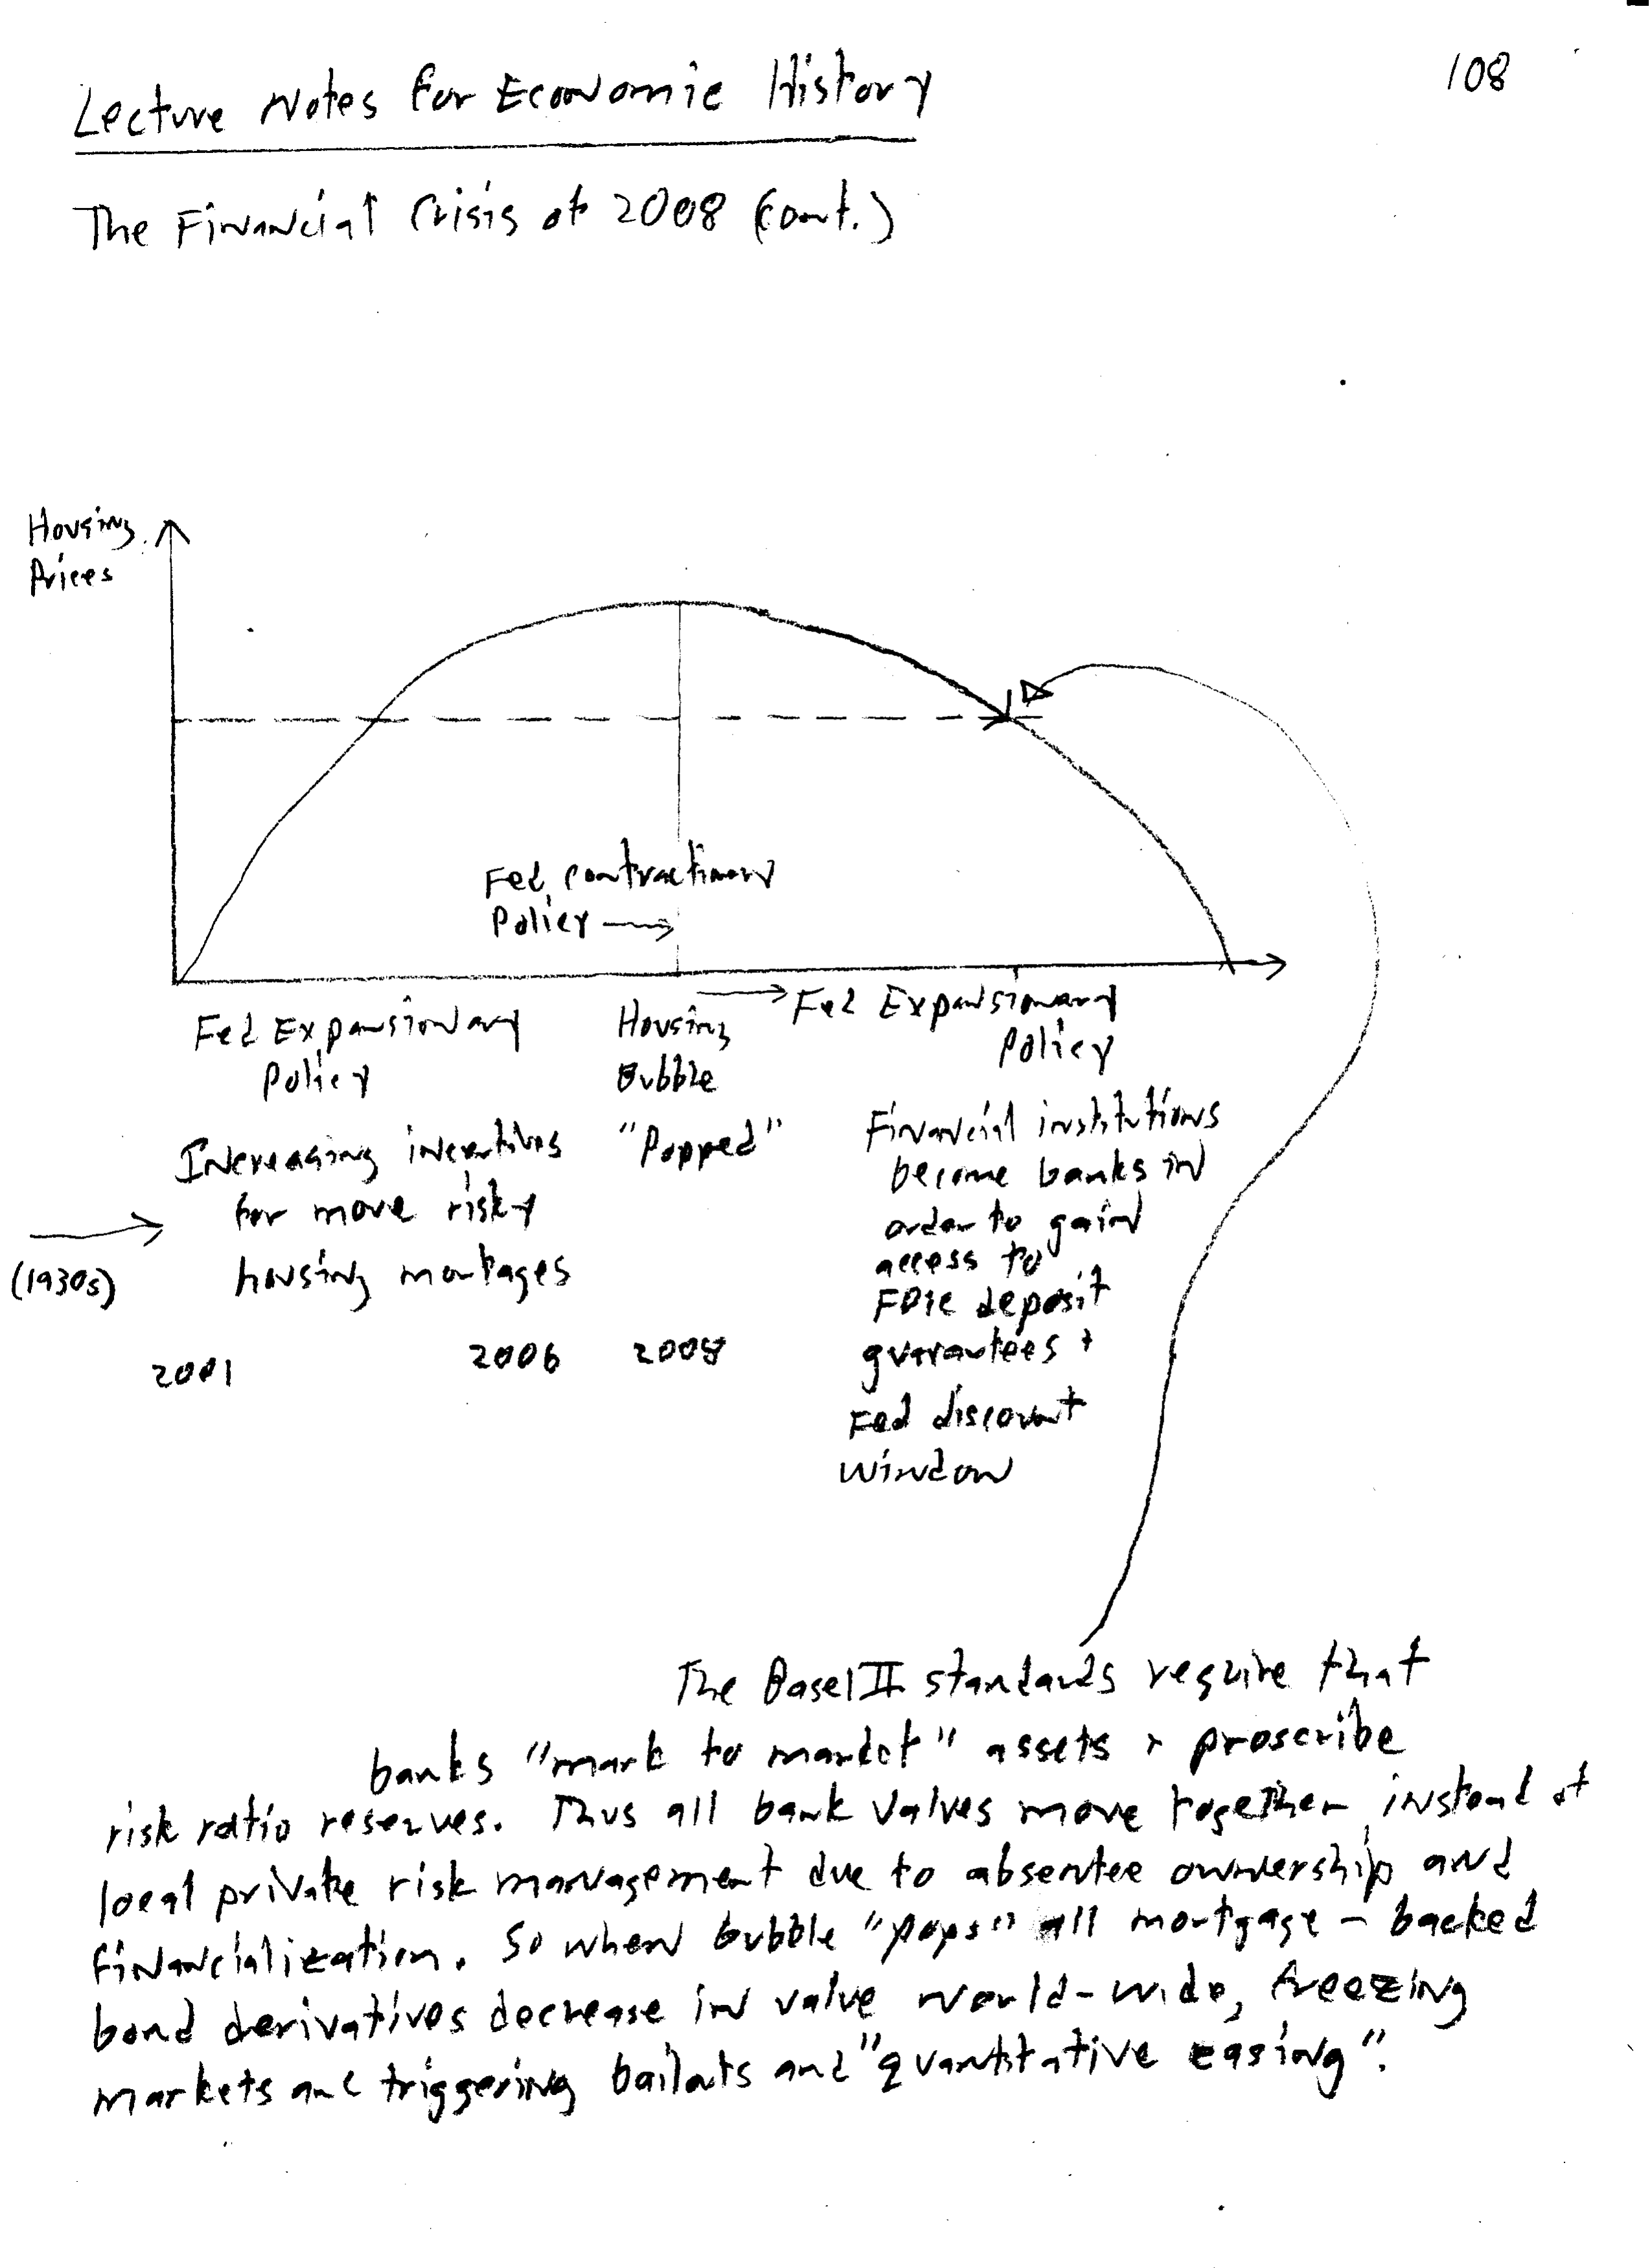 Lecture Notes for Economic History
108
The Financial Crisis of 2008 (cont.)
Housing
Prices
Fed contractionary
Policy →
Fed Expansionary
Policy
Housing
Bubble
"Popped"
→ Fed Expansionary
Policy
Increasing incentives
for more risky
housing mortages
→
(1930s)
2001
2006
2008
Financial institutions
become banks in
order to gain
access to
FDIC deposit
guarantees +
Fed discount
window
The Basel II standards require that
banks "mark to market" assets + proscribe
risk ratio reserves. Thus all bank values move together instead of
local private risk management due to absentee ownership and
financialization. So when bubble "pops" all mortgage-backed
bond derivatives decrease in value world-wide, freezing
markets and triggering bailouts and "quantitative easing".